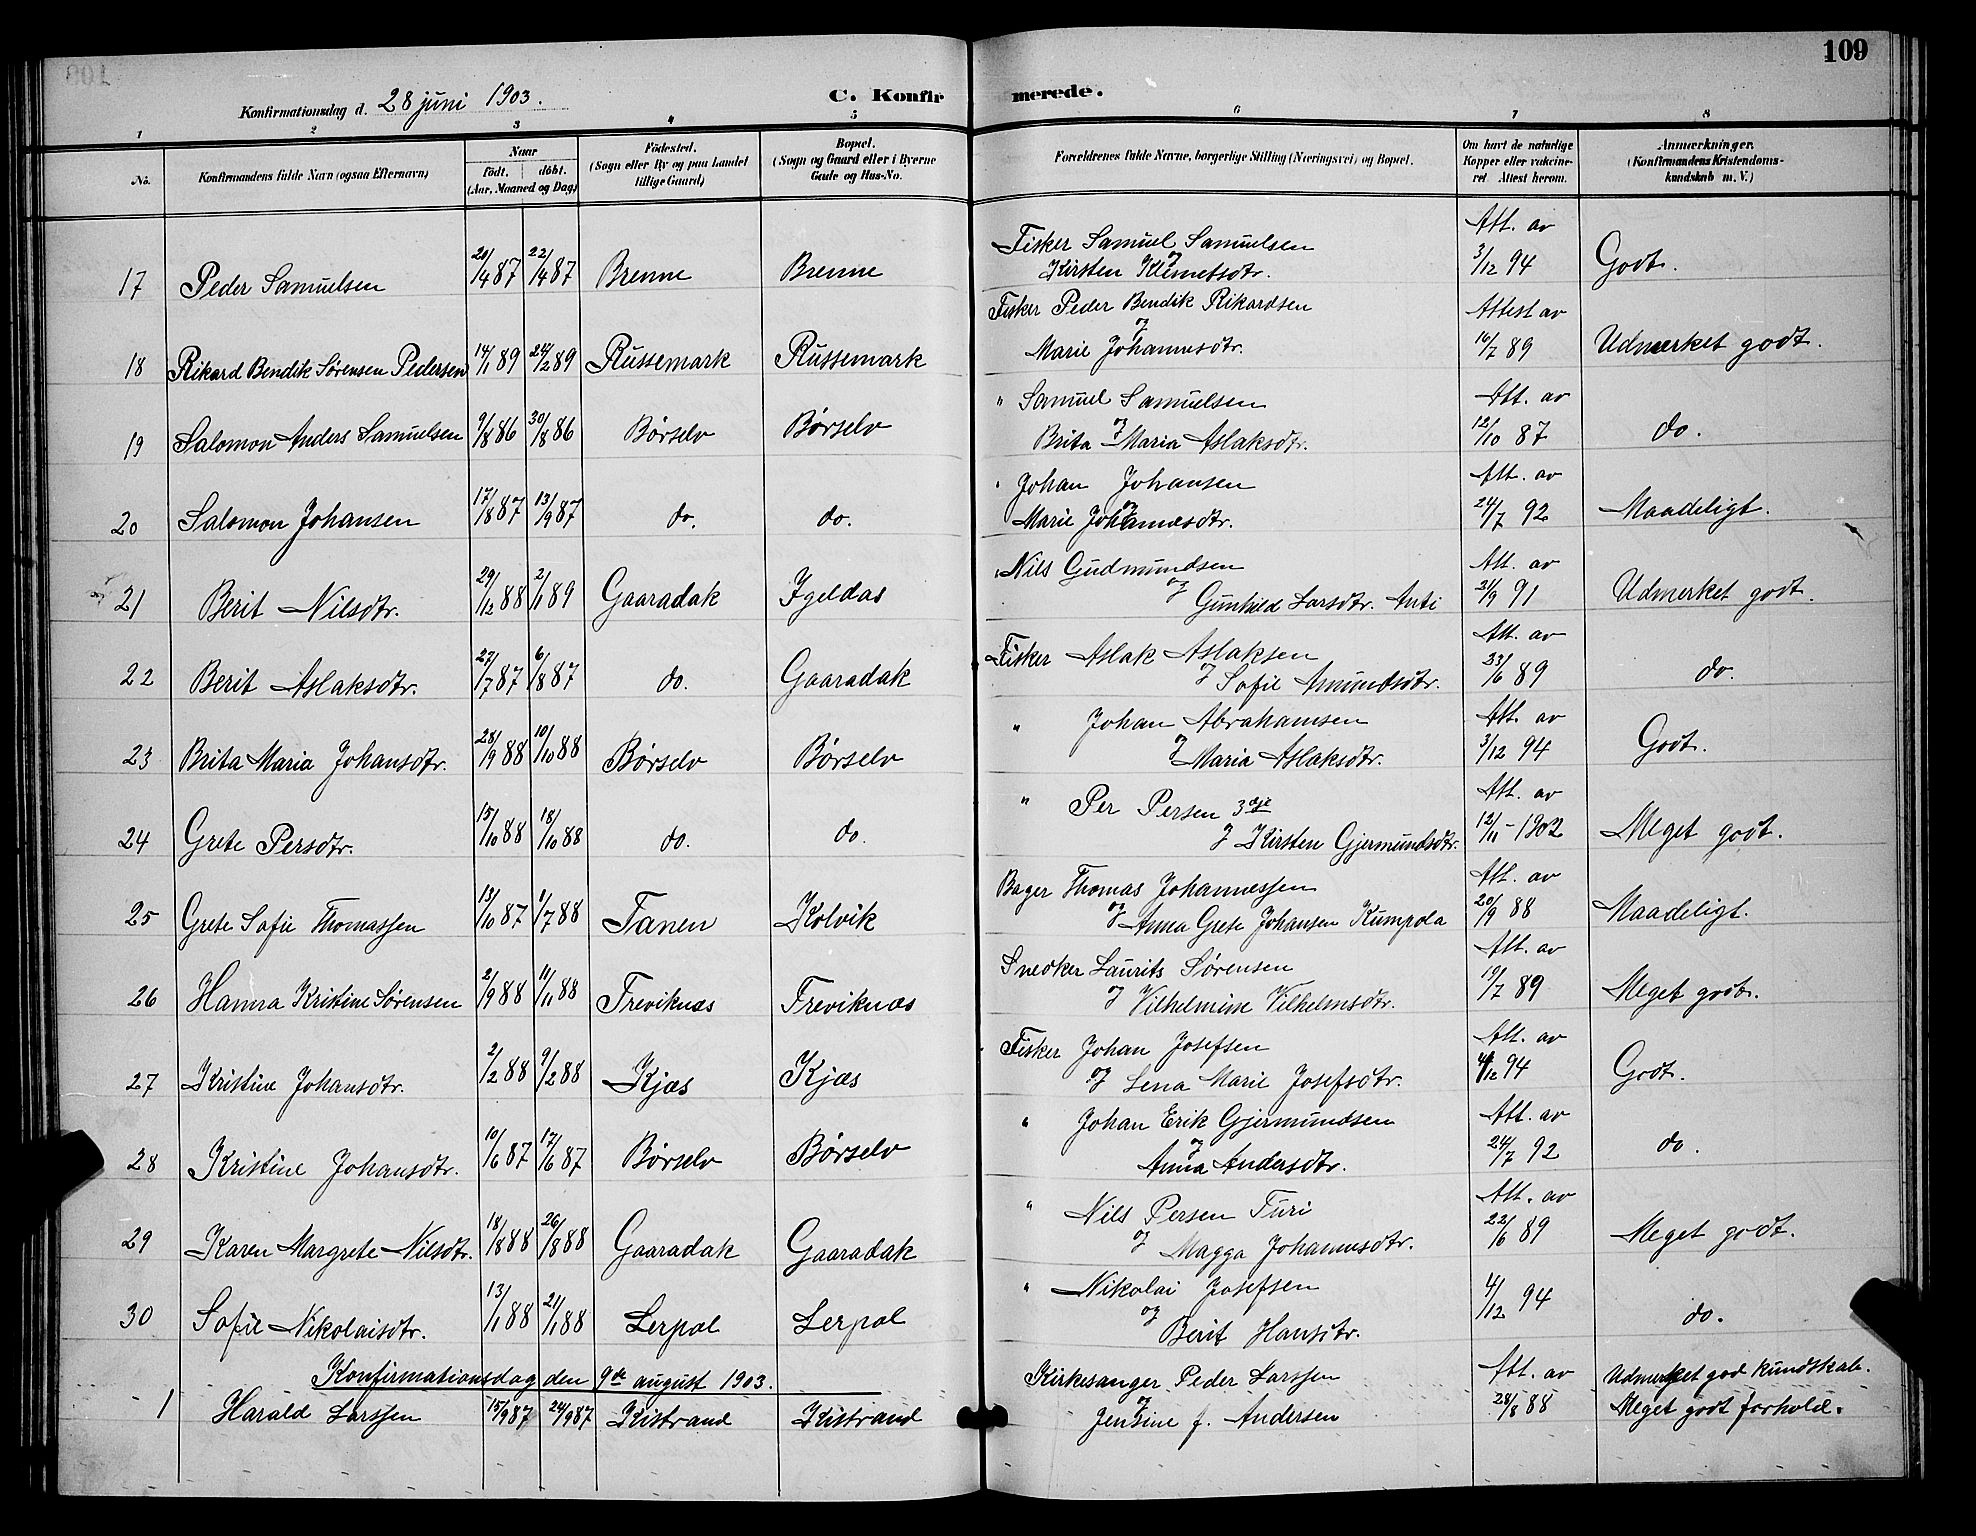 109
Konfirmationsdag d. 28 juni 1903.
C. Konfirmerede.
1 2 3 4 5 6 7 8
No. Konfirmandens fulde Navn (ogsaa Efternavn) Naar födt. döbt. (Aar, Maaned og Dag) Födested. (Sogn eller By og paa Landet tillige Gaard) Bopæl. (Sogn og Gaard eller i Byerne Gade og Hus-No. Forældrenes fulde Navne, borgerlige Stilling (Næringsvei) og Bopæl. Om havt de naturlige Kopper eller vakcineret Attest herom. Anmærkninger. (Konfirmandens Kristendomskundskab m. V.)
Fisker Samuel Samuelsen Att. av
17 Peder Samuelsen 20/4 87 22/4 87 Brenne Brenne og Kirsten Klemetsdtr. 3/12 94 Godt.
Fisker Peder Bendik Rikardsen Attest av
18 Rikard Bendik Sørensen Pedersen 14/1 89 24/2 89 Russemark Russemark og Marie Johannesdtr. 14/7 89 Udmerket godt.
" Samuel Samuelsen Att. av
19 Salomon Anders Samuelsen 9/8 86 30/8 86 Børselv Børselv og Brita Maria Aslaksdtr. 12/10 87 do.
" Johan Johansen Att. av
20 Salomon Johansen 17/8 87 13/9 87 do. do. og Marie Johannesdtr. 24/7 92 Maadeligt.
" Nils Gudmundsen Att. av
21 Berit Nilsdtr. 29/12 88 2/1 89 Gaaradak Igeldas og Gunhild Larsdtr. Anti 21/9 91 Udmerket godt.
Fisker Aslak Aslaksen Att. av
22 Berit Aslaksdtr. 27/7 87 6/8 87 do. Gaaradak og Sofie Amundsdtr. 23/6 89 do.
" Johan Abrahamsen Att. av
23 Brita Maria Johansdtr. 28/9 88 10/10 88 Børselv Børselv og Maria Aslaksdtr. 3/12 94 Godt.
" Per Persen 3dje Att. av
24 Grete Persdtr. 15/10 88 18/10 88 do. do. og Kirsten Gjermundsdtr. 12/11 - 1902 Meget godt.
Bager Thomas Johannessen Att. av
25 Grete Sofie Thomassen 13/10 87 1/7 88 Tanen Kolvik og Anna Grete Johansen Kumpola 20/9 88 Maadeligt.
Snedker Laurits Sørensen Att. av
26 Hanna Kristine Sørensen 2/9 88 11/11 88 Treviknæs Treviknæs og Vilhelmine Vilhelmsdtr. 19/7 89 Meget godt.
Fisker Johan Josefsen Att. av
27 Kristine Johansdtr. 2/2 88 9/2 88 Kjæs Kjæs og Lena Marie Josefsdtr. 4/12 94 Godt.
" Johan Erik Gjermundsen Att. av
28 Kristine Johansdtr. 10/6 87 17/6 87 Børselv Børselv og Anna Andersdtr. 24/7 92 do.
" Nils Persen Turi Att. av
29 Karen Margrete Nilsdtr. 18/8 88 26/8 88 Gaaradak Gaaradak og Magga Johannesdtr. 22/6 89 Meget godt.
" Nikolai Josefsen
30 Sofie Nikolaisdtr. 13/1 88 21/1 88 Lerpol Lerpol og Berit Hansdtr. 4/12 94 do.
Konfirmationsdag den 9de august 1903.
Kirkesanger Peder Larssen Att. av Udmerket god kundskab.
1 Harald Larssen 15/9 87 24/9 87 Kistrand Kistrand og Jensine f. Andersen 28/8 88 Meget godt forhold.